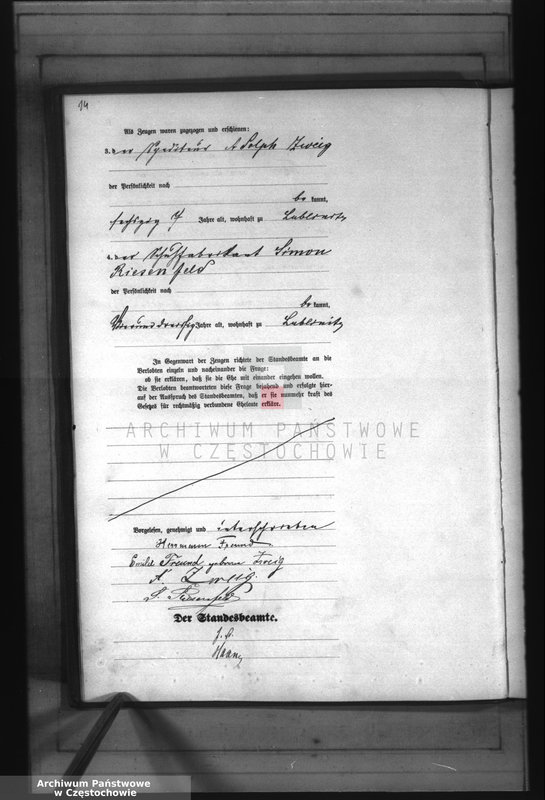 14
Als Zeugen waren zugezogen und erschienen:
3. der Spediteur Adolph Zweig
der Persönlichkeit nach
be kannt,
sechszig Jahre alt, wohnhaft zu Lublinitz
4. der Schuhfabrikant Simon
Riesenfeld
der Persönlichkeit nach
be kannt,
Vierunddreißig Jahre alt, wohnhaft zu Lublinitz
In Gegenwart der Zeugen richtete der Standesbeamte an die
Verlobten einzeln und nacheinander die Frage:
ob sie erklären, daß sie die Ehe mit einander eingehen wollen.
Die Verlobten beantworteten diese Frage bejahend und erfolgte hier-
auf der Ausspruch des Standesbeamten, daß er sie nunmehr kraft des
Gesetzes für rechtmäßig verbundene Eheleute erkläre.
ARCHIWUM PAŃSTWOWE
W CZĘSTOCHOWIE
Vorgelesen, genehmigt und unterschrieben
Hermann Freund
Emilie Freund geborene Zweig
A. Zweig.
S. Riesenfeld
Der Standesbeamte.
Archiwum Państwowe
w Częstochowie